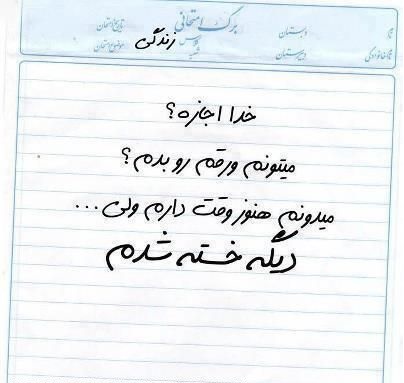 برگ امتحانی
نام
دبستان
تاریخ امتحان
درس
زندگی
نام خانوادگی
دبیرستان
شعبه
موضوع امتحان
خدا اجازه؟
میتونم ورقم رو بدم؟
میدونم هنوز وقت دارم ولی...
دیگه خسته شدم